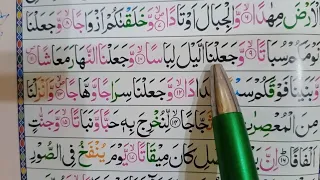 الْاَرْضَ مِهٰدًا ۙ﴿۶﴾ وَّالْجِبَالَ اَوْتَادًا ۪ۙ﴿۷﴾ وَّخَلَقْنٰكُمْ اَزْوَاجًا ۙ﴿۸﴾ وَّجَعَلْنَا
نَوْمَكُمْ سُبَاتًا ۙ﴿۹﴾ وَّجَعَلْنَا الَّيْلَ لِبَاسًا ۙ﴿۱۰﴾ وَّجَعَلْنَا النَّهَارَ مَعَاشًا ﴿۱۱﴾
وَّبَنَيْنَا فَوْقَكُمْ سَبْعًا شِدَادًا ۙ﴿۱۲﴾ وَّجَعَلْنَا سِرَاجًا وَّهَّاجًا ﴿۱۳﴾ وَّاَنْزَلْنَا
مِنَ الْمُعْصِرٰتِ ﴿۱۴﴾ لِّنُخْرِجَ بِهٖ حَبًّا وَّنَبَاتًا ﴿۱۵﴾ وَّجَنّٰتٍ
اَلْفَافًا ﴿۱۶﴾ الْفَصْلِ كَانَ مِيْقَاتًا ﴿۱۷﴾ يَّوْمَ يُنْفَخُ فِى الصُّوْرِ